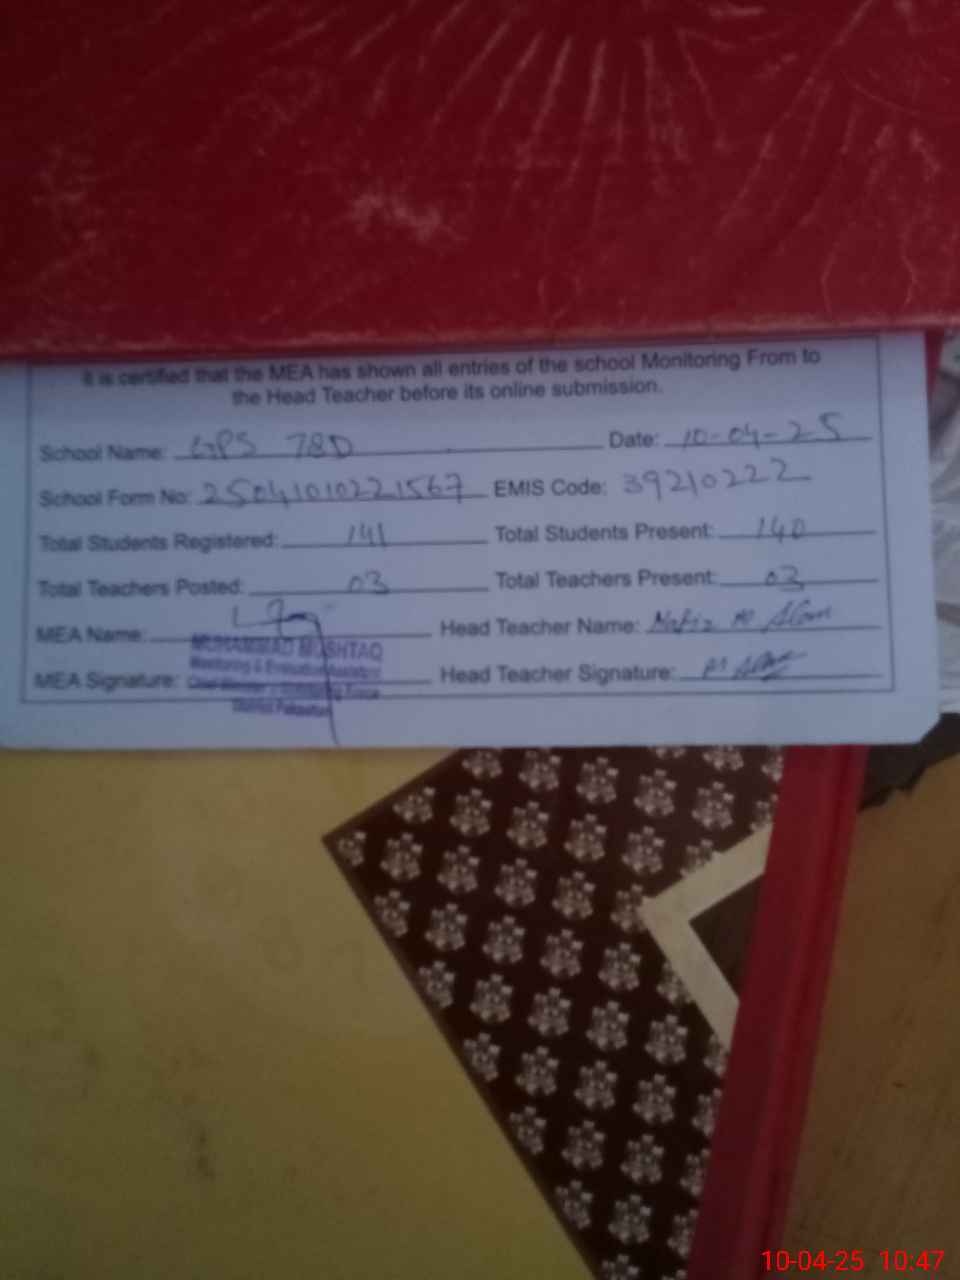 it is certified that the MEA has shown all entries of the school Monitoring From to
the Head Teacher before its online submission.
School Name: GPS 78D Date: 10-04-25
School Form No: 25041010221567 EMIS Code: 39210222
Total Students Registered: 141 Total Students Present: 140
Total Teachers Posted: 03 Total Teachers Present: 03
MEA Name: Head Teacher Name: Hafiz M Alam
MUHAMMAD MUSHTAQ
Monitoring & Evaluation Assistant
MEA Signature: Head Teacher Signature:
District Pakpattan
10-04-25 10:47